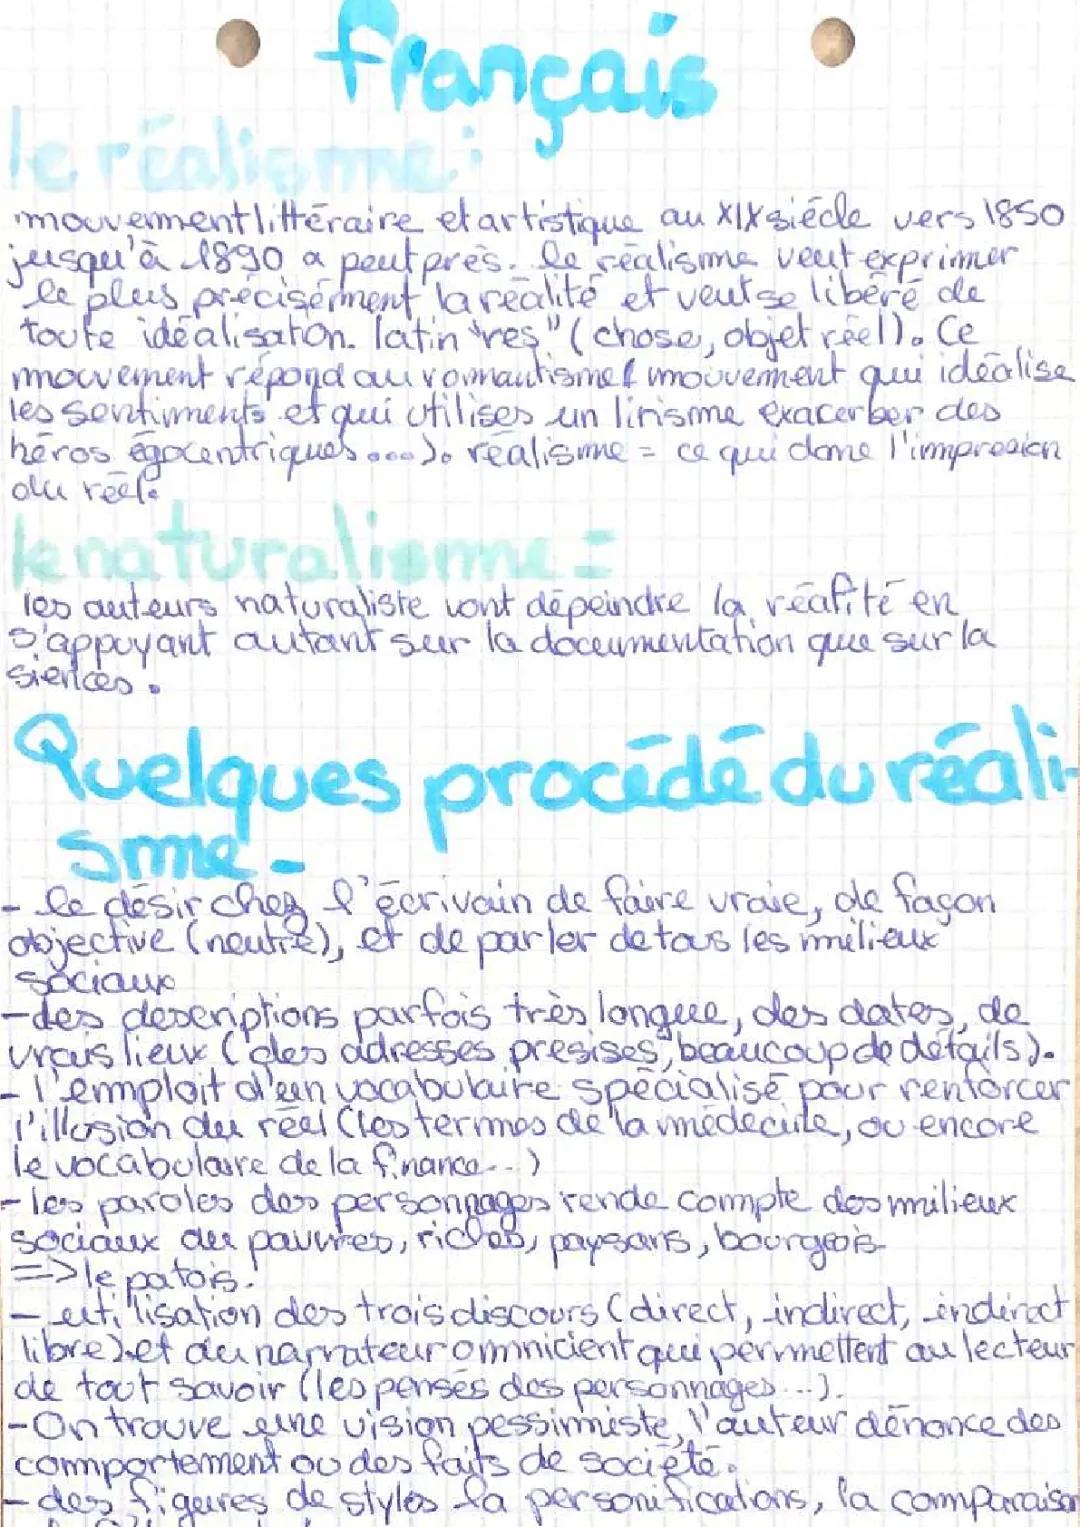 français
le réalisme :
mouvement littéraire et artistique au XIX siécle vers 1850
jusqu'à 1890 a peut près. le réalisme veut exprimer
le plus précisément la réalité et veut se libéré de
toute idéalisaton. latin "res" (chose, objet réel). Ce
mouvement répond au romantisme (mouvement qui idéalise
les sentiments et qui utilises un lirisme exacerber des
héros égocentriques....). réalisme = ce qui done l'impression
du réel.
le naturalisme =
les auteurs naturaliste vont dépeindre la réalité en
s'appuyant autant sur la documentation que sur la
siences.
Quelques procédé du réali-
sme -
- le désir chez l'écrivain de faire vraie, de façon
objective (neutre), et de parler de tous les milieux
sociaux
- des descriptions parfois très longue, des dates, de
vrais lieux (des adresses présises, beaucoup de détails).
- l'emploit d'un vocabulaire spécialisé pour renforcer
l'illusion du réel (les termes de la médecine, ou encore
le vocabulaire de la finance...)
- les paroles des personnages rende compte des milieux
sociaux du pauvres, riches, paysans, bourgeois
=> le patois.
- utilisation des trois discours (direct, indirect, indirect
libre) et du narrateur omnicient qui permettent au lecteur
de tout savoir (les pensés des personnages...).
- On trouve une vision pessimiste, l'auteur dénonce des
comportement ou des faits de société.
- des figures de styles la personifications, la comparaison